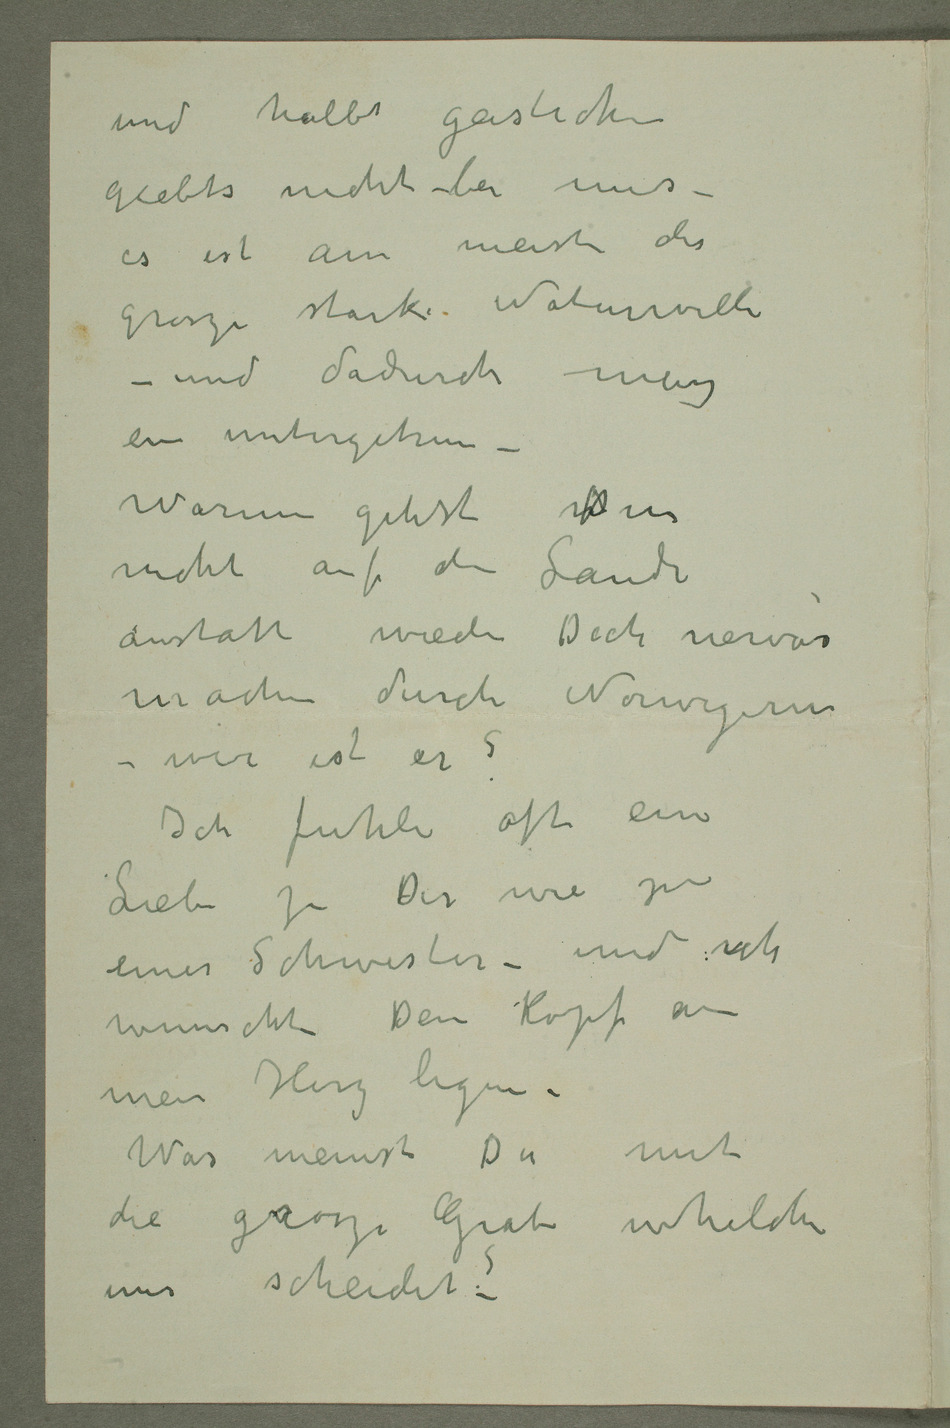 und halbt geistichen
giebts nicht – bei uns –
es ist am meisten der
grosze starke Naturwille
– und dadurch musz
ein untergehen –
Warum gehst Du
nicht auf den Lande
anstatt wieder Dich nervös
machen durch Norwegern
– wie ist er?
Ich fuhle oft eine
Liebe zu Dir wie zu
einer Schwester – und ich
wunschte Dein Kopf an
mein Herz legen.
Was meinst Du mit
die grosze Grab whelche
uns scheidet? –